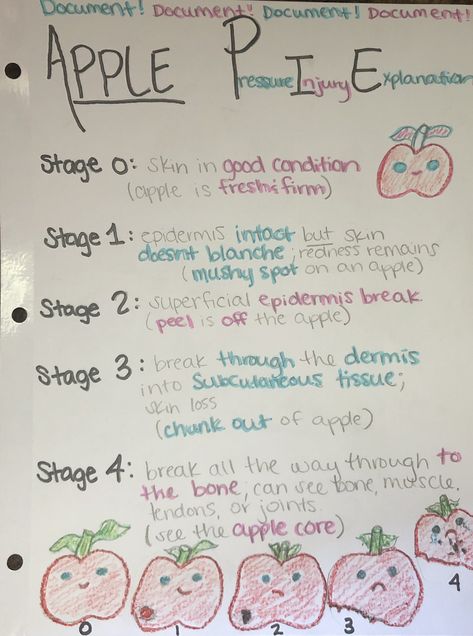 Document! Document! Document! Document!
APPLE Pressure Injury Explanation
Stage 0: skin in good condition
(apple is fresh & firm)
Stage 1: epidermis intact but skin
doesnt blanche; redness remains
(mushy spot on an apple)
Stage 2: superficial epidermis break
(peel is off the apple)
Stage 3: break through the dermis
into subcutaneous tissue;
skin loss
(chunk out of apple)
Stage 4: break all the way through to
the bone; can see bone, muscle,
tendons, or joints.
(see the apple core)
0 1 2 3 4